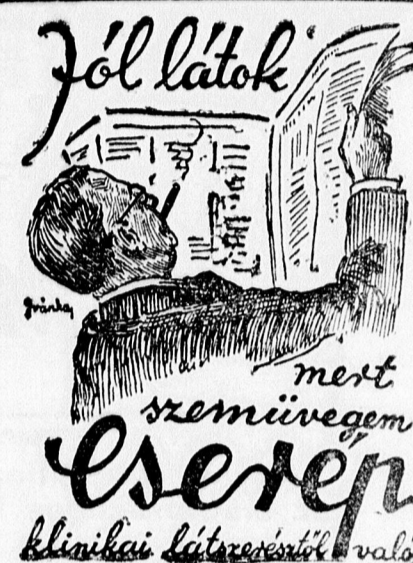 Jól látok
mert
szemüvegem
Cserép
klinikai látszerésztől való